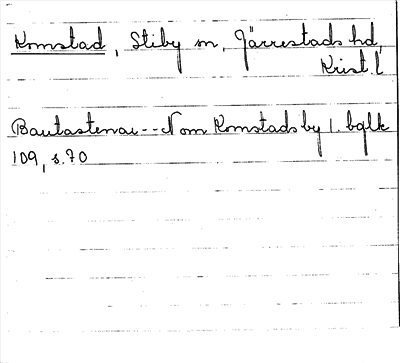 Komstad, Stiby sn, Järrestads hd,
Krist. l
Bautastenar -- N om Komstads by 1. bglk
109, s. 70